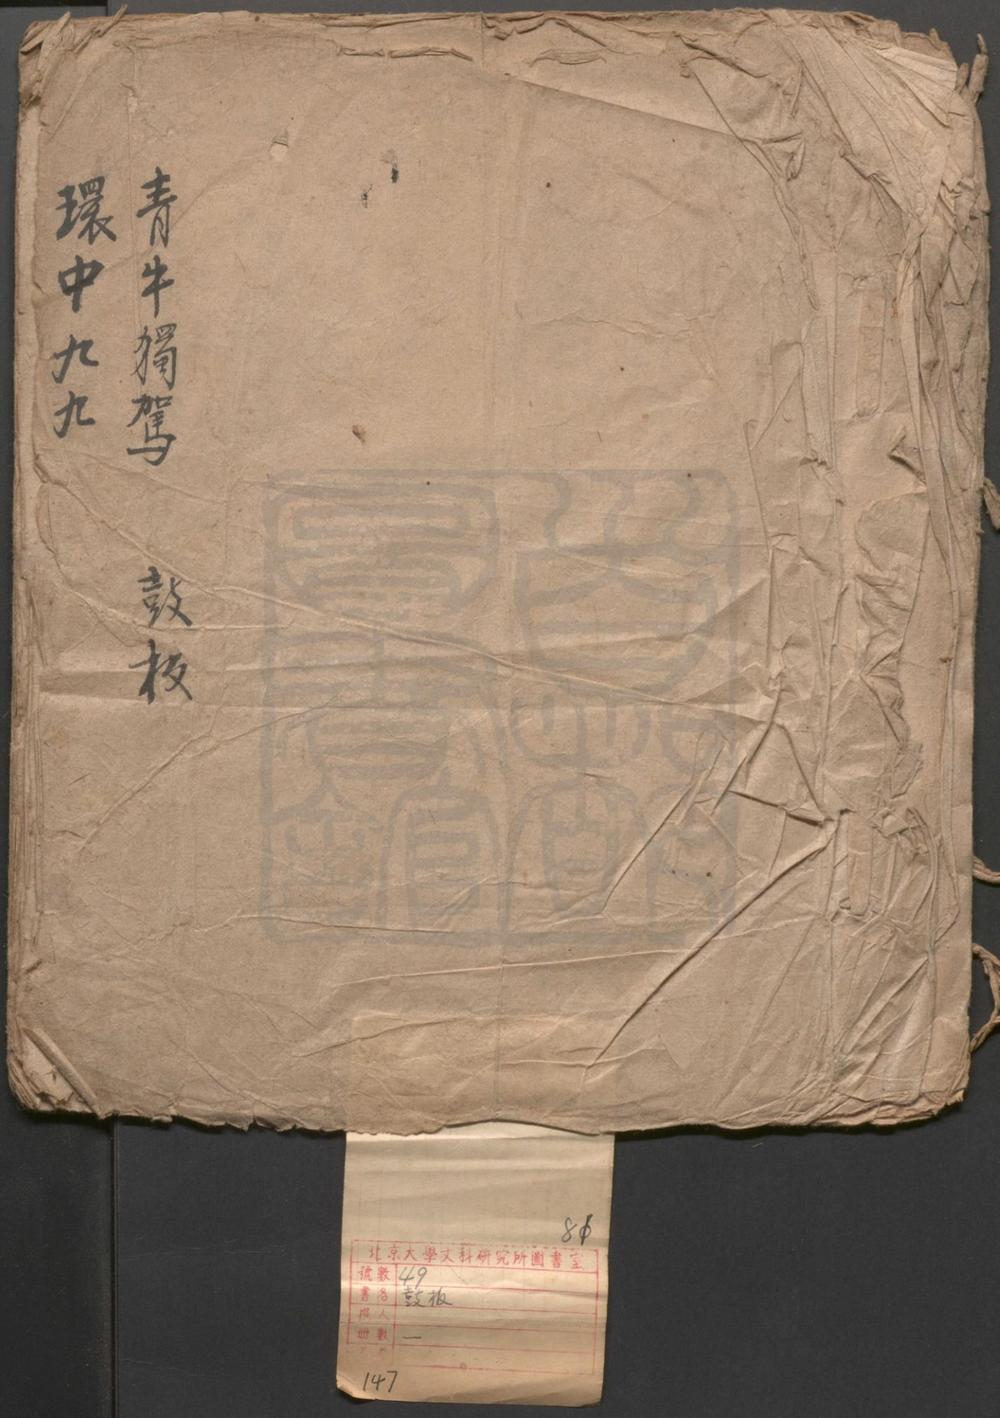 青牛獨駕 鼓板
環中九九
8
北京大學文科研究所圖書室
號數 49
書名 鼓板
冊數 一
147